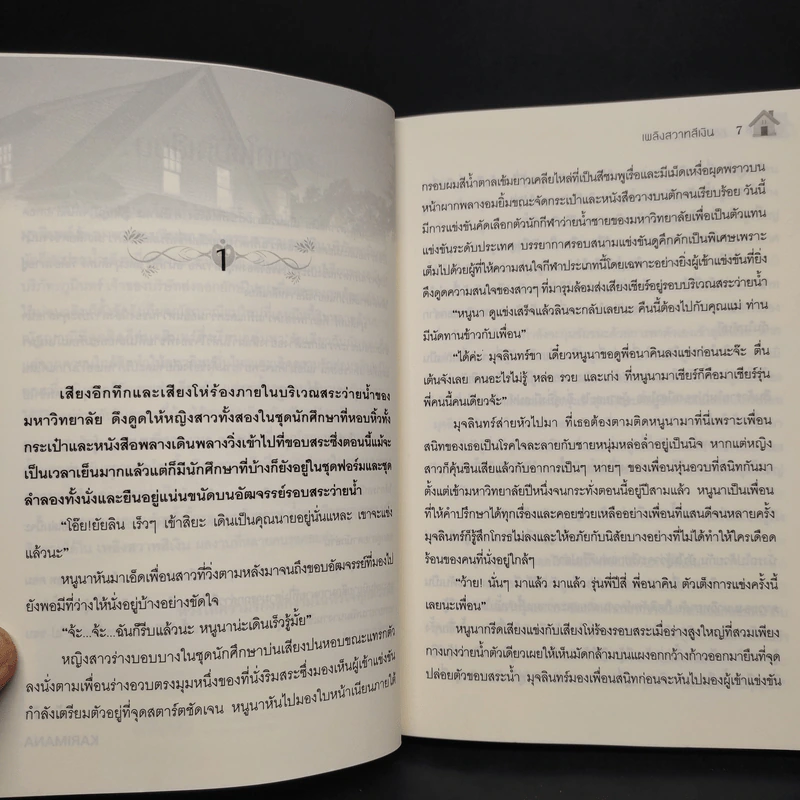 1
เสียงอึกทึกและเสียงโห่ร้องภายในบริเวณสระว่ายน้ำของ
มหาวิทยาลัย ดึงดูดให้หญิงสาวทั้งสองในชุดนักศึกษาที่หอบหิ้วทั้ง
กระเป๋าและหนังสือพลางเดินพลางวิ่งเข้าไปที่ขอบสระซึ่งตอนนี้แม้จะ
เป็นเวลาเย็นมากแล้วแต่ก็มีนักศึกษาที่บ้างก็ยังอยู่ในชุดฟอร์มและชุด
ลำลองทั้งนั่งและยืนอยู่แน่นขนัดบนอัฒจรรย์รอบสระว่ายน้ำ
“โอ๊ย!ยัยลิน เร็วๆ เข้าสิยะ เดินเป็นคุณนายอยู่นั่นแหละ เขาจะแข่ง
แล้วนะ”
หนูนาหันมาเอ็ดเพื่อนสาวที่วิ่งตามหลังมาจนถึงขอบอัฒจรรย์ที่มองไป
ยังพอมีที่ว่างให้นั่งอยู่บ้างอย่างขัดใจ
“จ้ะ...จ้ะ...ฉันก็รีบแล้วนะ หนูนาน่ะเดินเร็วรู้มั้ย”
หญิงสาวร่างบอบบางในชุดนักศึกษาบ่นเสียงปนหอบขณะแทรกตัว
ลงนั่งตามเพื่อนร่างอวบตรงมุมหนึ่งของที่นั่งริมสระซึ่งมองเห็นผู้เข้าแข่งขัน
กำลังเตรียมตัวอยู่ที่จุดสตาร์ตชัดเจน หนูนาหันไปมองใบหน้าเนียนภายใต้
KARIMANA
เพลิงสวาทสีเงิน 7
กรอบผมสีน้ำตาลเข้มยาวเคลียไหล่ที่เป็นสีชมพูเรื่อและมีเม็ดเหงื่อผุดพราวบน
หน้าผากพลางอมยิ้มขณะจัดกระเป๋าและหนังสือวางบนตักจนเรียบร้อย วันนี้
มีการแข่งขันคัดเลือกตัวนักกีฬาว่ายน้ำชายของมหาวิทยาลัยเพื่อเป็นตัวแทน
แข่งขันระดับประเทศ บรรยากาศรอบสนามแข่งขันดูคึกคักเป็นพิเศษเพราะ
เต็มไปด้วยผู้ที่ให้ความสนใจกีฬาประเภทนี้โดยเฉพาะอย่างยิ่งผู้เข้าแข่งขันที่ยิ่ง
ดึงดูดความสนใจของสาวๆ ที่มารุมล้อมส่งเสียงเชียร์อยู่รอบบริเวณสระว่ายน้ำ
“หนูนา ดูแข่งเสร็จแล้วลินจะกลับเลยนะ คืนนี้ต้องไปกับคุณแม่ ท่าน
มีนัดทานข้าวกับเพื่อน”
“ได้ค่ะ มุจลินทร์ขา เดี๋ยวหนูนาขอดูพี่อนาคินลงแข่งก่อนนะจ๊ะ ตื่น
เต้นจังเลย คนอะไรไม่รู้ หล่อ รวย และเก่ง ที่หนูนามาเชียร์ก็คือมาเชียร์รุ่น
พี่คนนี้คนเดียวจ้ะ”
มุจลินทร์ส่ายหัวไปมา ที่เธอต้องตามติดหนูนามาที่นี่เพราะเพื่อน
สนิทของเธอเป็นโรคใจละลายกับชายหนุ่มหล่อล่ำอยู่เป็นนิจ หากแต่หญิง
สาวก็คุ้นชินเสียแล้วกับอาการเป็นๆ หายๆ ของเพื่อนหุ่นอวบที่สนิทกันมา
ตั้งแต่เข้ามหาวิทยาลัยปีหนึ่งจนกระทั่งตอนนี้อยู่ปีสามแล้ว หนูนาเป็นเพื่อน
ที่ให้คำปรึกษาได้ทุกเรื่องและคอยช่วยเหลืออย่างเพื่อนที่แสนดีจนหลายครั้ง
มุจลินทร์ก็รู้สึกโกรธไม่ลงและให้อภัยกับนิสัยบางอย่างที่ไม่ได้ทำให้ใครเดือด
ร้อนของคนที่นั่งอยู่ใกล้ๆ
“ว้าย! นั่นๆ มาแล้ว มาแล้ว รุ่นพี่ปีสี่ พี่อนาคิน ตัวเต็งการแข่งครั้งนี้
เลยนะเพื่อน”
หนูนากรีดเสียงแข่งกับเสียงโห่ร้องรอบสระเมื่อร่างสูงใหญ่ที่สวมเพียง
กางเกงว่ายน้ำตัวเดียวเผยให้เห็นมัดกล้ามบนแผงอกกว้างก้าวออกมายืนที่จุด
ปล่อยตัวขอบสระน้ำ มุจลินทร์มองเพื่อนสนิทก่อนจะหันไปมองผู้เข้าแข่งขัน